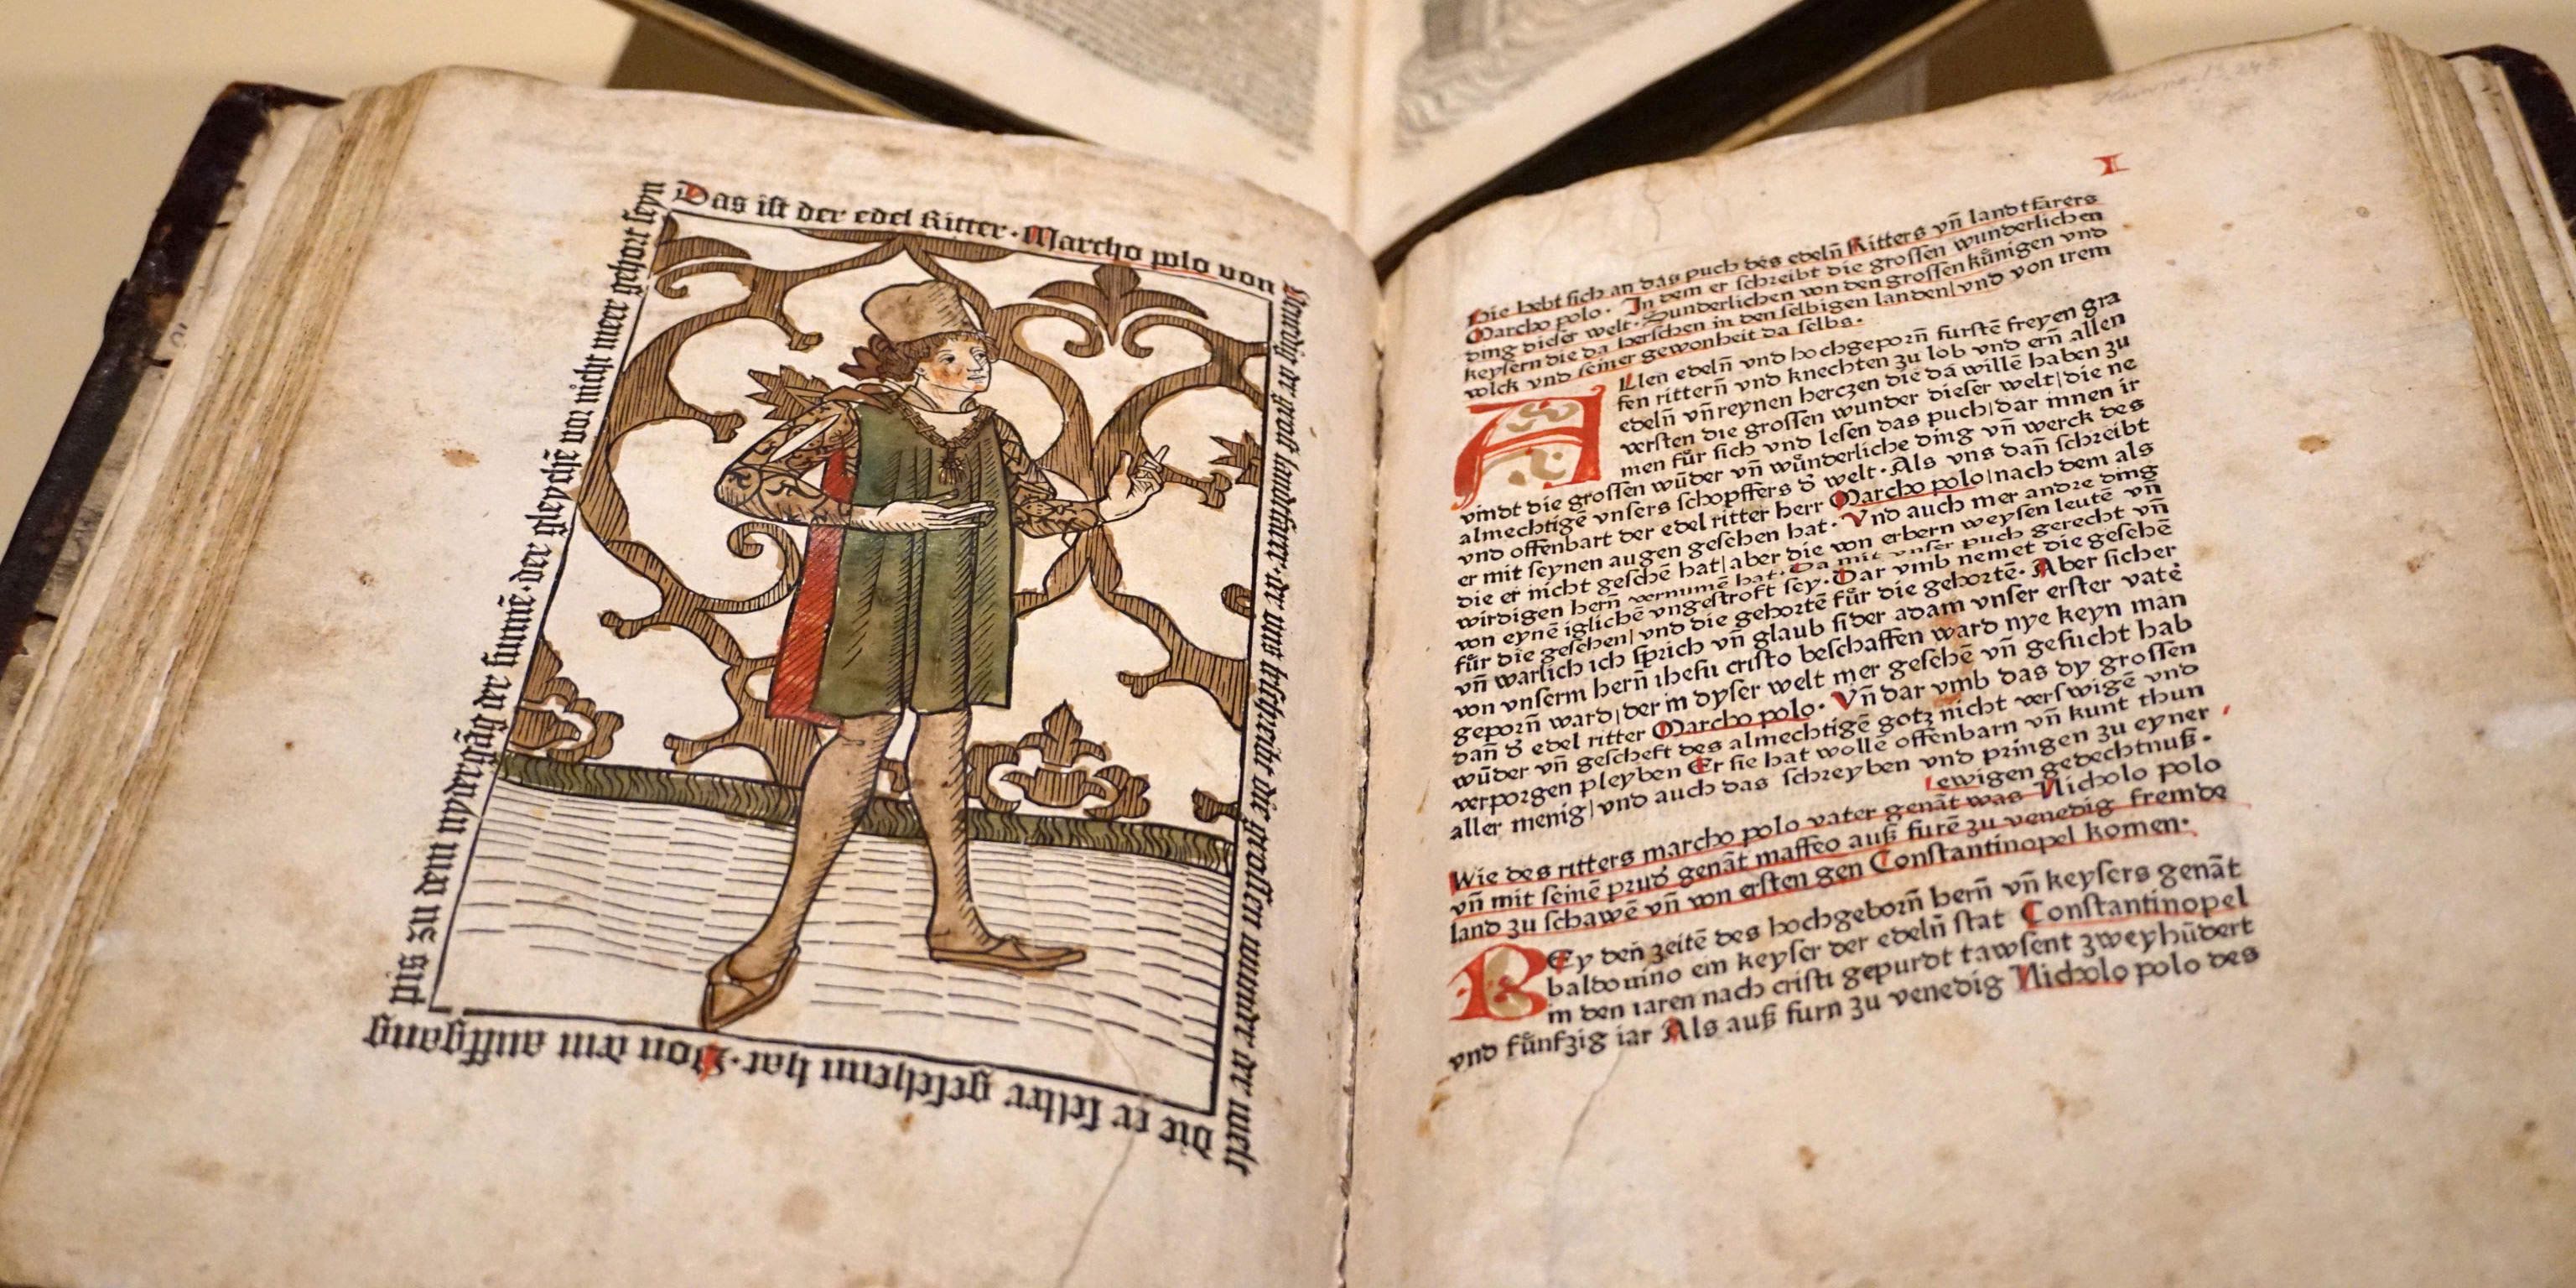 Das ist der edel Ritter · Marcho polo von
Venedig der grost landtfarer · der uns beschreibt die grossen wunder der welt
die er selber gesehenn hat · Von dem auffgang
pis zu dem nydergãg der sunnē · der gleychē vor nicht meer gehort seyn
I
Hie hebt sich an das puch des edelñ Ritters vñ landtfarers
Marcho polo · In dem er schreibt die grossen wunderlichen
ding dieser welt · Sunderlichen von den grossen kůnigen vnd
keysern die da herschen in den selbigen landen/vnd von irem
volck vnd seiner gewonheit da selbs ·
ALlen edelñ vnd hochgeporñ furstē freyen gra
fen ritterñ vnd knechten zu lob vnd erñ allen
edelñ vñ reynen herczen die da willē haben zu
versten die grossen wunder dieser welt/die ne
men fůr sich vnd lesen das puch/dar innen ir
vindt die grossen wũder vñ wůnderliche ding vñ werck des
almechtigē vnsers schopffers d̕ welt · Als vns dañ schreibt
vnd offenbart der edel ritter herr Marcho polo/nach dem als
er mit seynen augen gesehen hat · Vnd auch mer andre ding
die er nicht gesehē hat/aber die von erbern weysen leutē vñ
wirdigen herñ vernumē hat · Da mit vnser puch gerecht vñ
von eynē iglichē vngestroft sey · Dar vmb nemet die gesehē
fůr die gesehen/vnd die gehortē fůr die gehortē · Aber sicher
vñ warlich ich sprich vñ glaub sider adam vnser erster vatē
von vnserm herñ ihesu cristo beschaffen ward nye keyn man
geporñ ward/der in dyser welt mer gesehē vñ gesucht hab
dañ d̕ edel ritter Marcho polo · Vñ dar vmb das dy grossen
wũder vñ gescheft des almechtigē gotz nicht verswigē vnd
verporgen pleyben Er sie hat wollē offenbarn vñ kunt thun
aller menig/vnd auch das schreyben vnd pringen zu eyner
ewigen gedechtnuß ·
Wie des ritters marcho polo vater genãt was Nicholo polo
vñ mit seinē prud̕ genãt maffeo auß furē zu venedig fremde
land zu schawē vñ von ersten gen Constantinopel komen ·
BEy den zeitē des hochgeborñ herñ vñ keysers genãt
baldouino ein keyser der edelñ stat Constantinopel
in den iaren nach cristi gepurdt tawsent zweyhũdert
vnd fůnfzig iar Als auß furn zu venedig Nicholo polo des